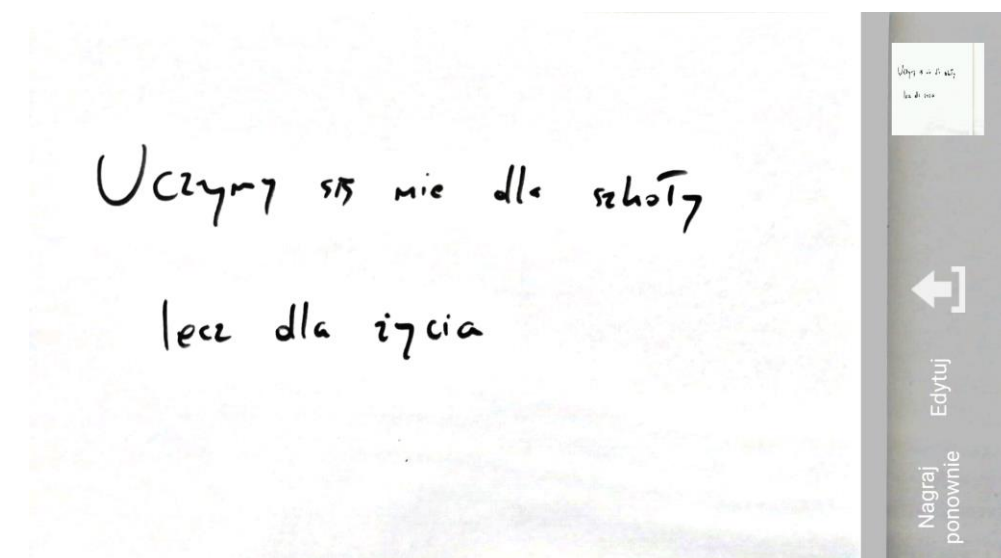 Uczymy się nie dla szkoły
lecz dla życia
Edytuj
Nagraj
ponownie